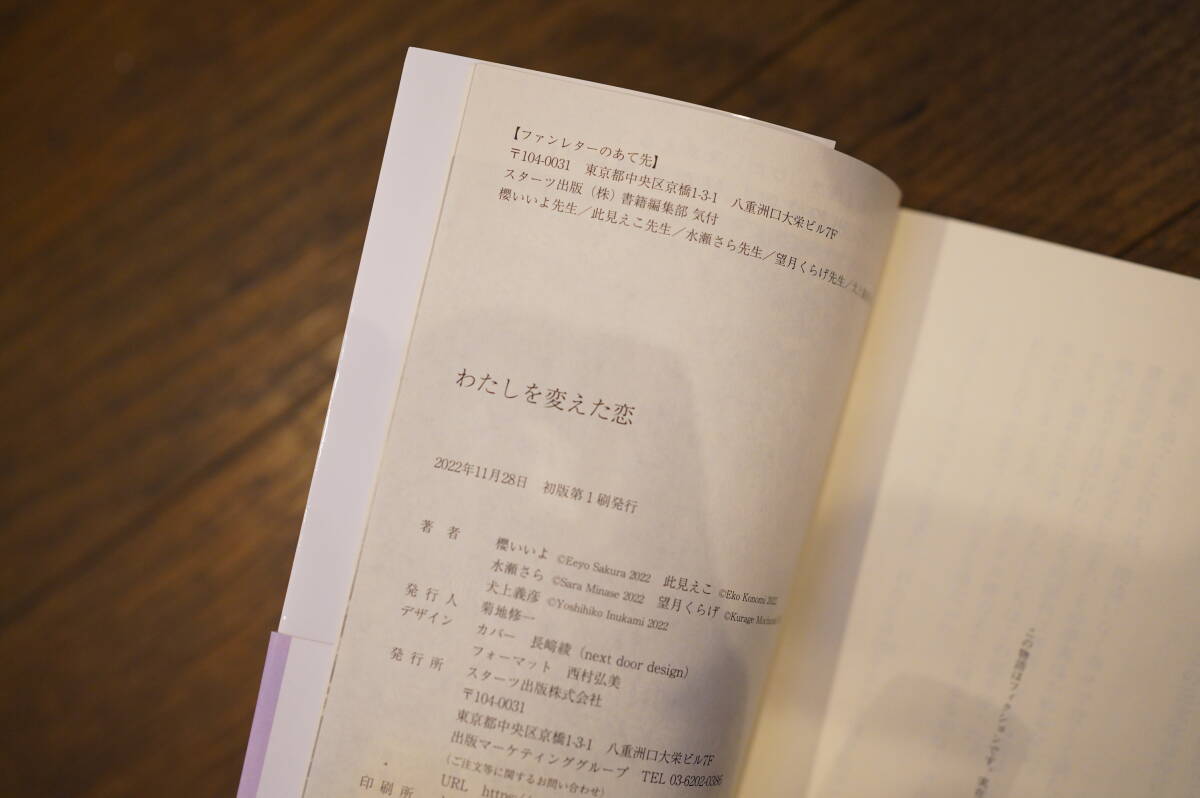 【ファンレターのあて先】
〒104-0031 東京都中央区京橋1-3-1 八重洲口大栄ビル7F
スターツ出版（株）書籍編集部 気付
櫻いいよ先生／此見えこ先生／水瀬さら先生／望月くらげ先生／
わたしを変えた恋
2022年11月28日 初版第1刷発行
著者 櫻いいよ ©Eeyo Sakura 2022 此見えこ ©Eko Konomi 2022
水瀬さら ©Sara Minase 2022 望月くらげ ©Kurage
犬上義彦 ©Yoshihiko Inukami 2022
発行人 菊地修一
デザイン カバー 長﨑綾（next door design）
フォーマット 西村弘美
発行所 スターツ出版株式会社
〒104-0031
東京都中央区京橋1-3-1 八重洲口大栄ビル7F
出版マーケティンググループ TEL 03-6202-0386
（ご注文等に関するお問い合わせ）
URL
印刷所
この物語はフィクションです。